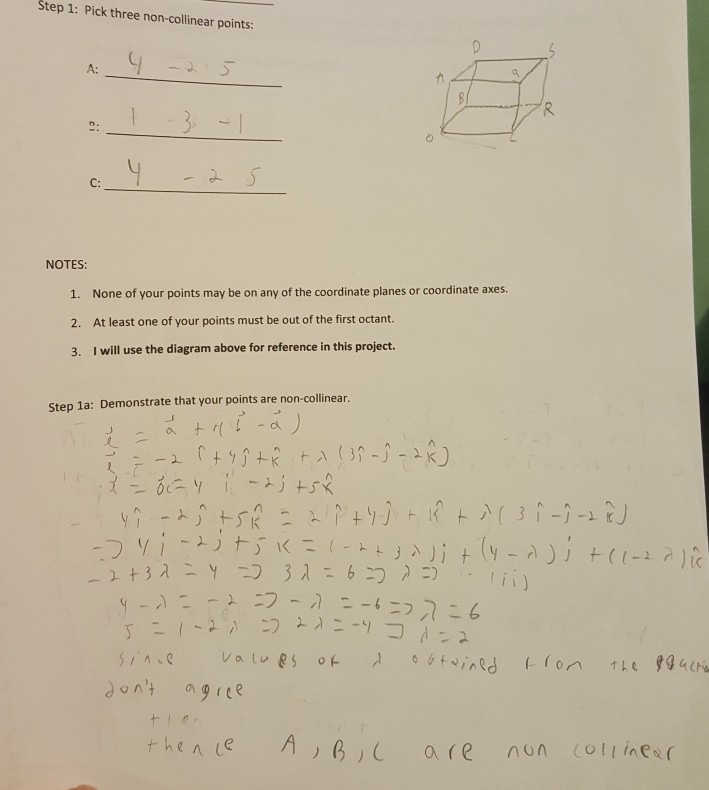 Step 1: Pick three non-collinear points:
A: 4 -2 5
B: 1 -3 -1
C: 4 -2 5
D S
A Q
B R
O L
NOTES:
1. None of your points may be on any of the coordinate planes or coordinate axes.
2. At least one of your points must be out of the first octant.
3. I will use the diagram above for reference in this project.
Step 1a: Demonstrate that your points are non-collinear.
= a⃗ + ( - a⃗ )
= -2 î + 4ĵ + k̂ + λ (3î - ĵ - 2k̂)
= 4 i - 2j + 5k̂
4î - 2ĵ + 5k̂ = 2î + 4ĵ + k + λ( 3 î - ĵ - 2 k̂)
=> 4i - 2j + 5 k = (-2 + 3λ)i + (4 - λ)j + (1 - 2λ)k̂
-2 + 3λ = 4 => 3λ = 6 => λ =>
4 - λ = -2 => -λ = -6 => λ = 6
5 = 1 - 2λ => 2λ = -4 => λ = 2
since values of λ obtained from the
don't agree
thence A, B, C are non collinear